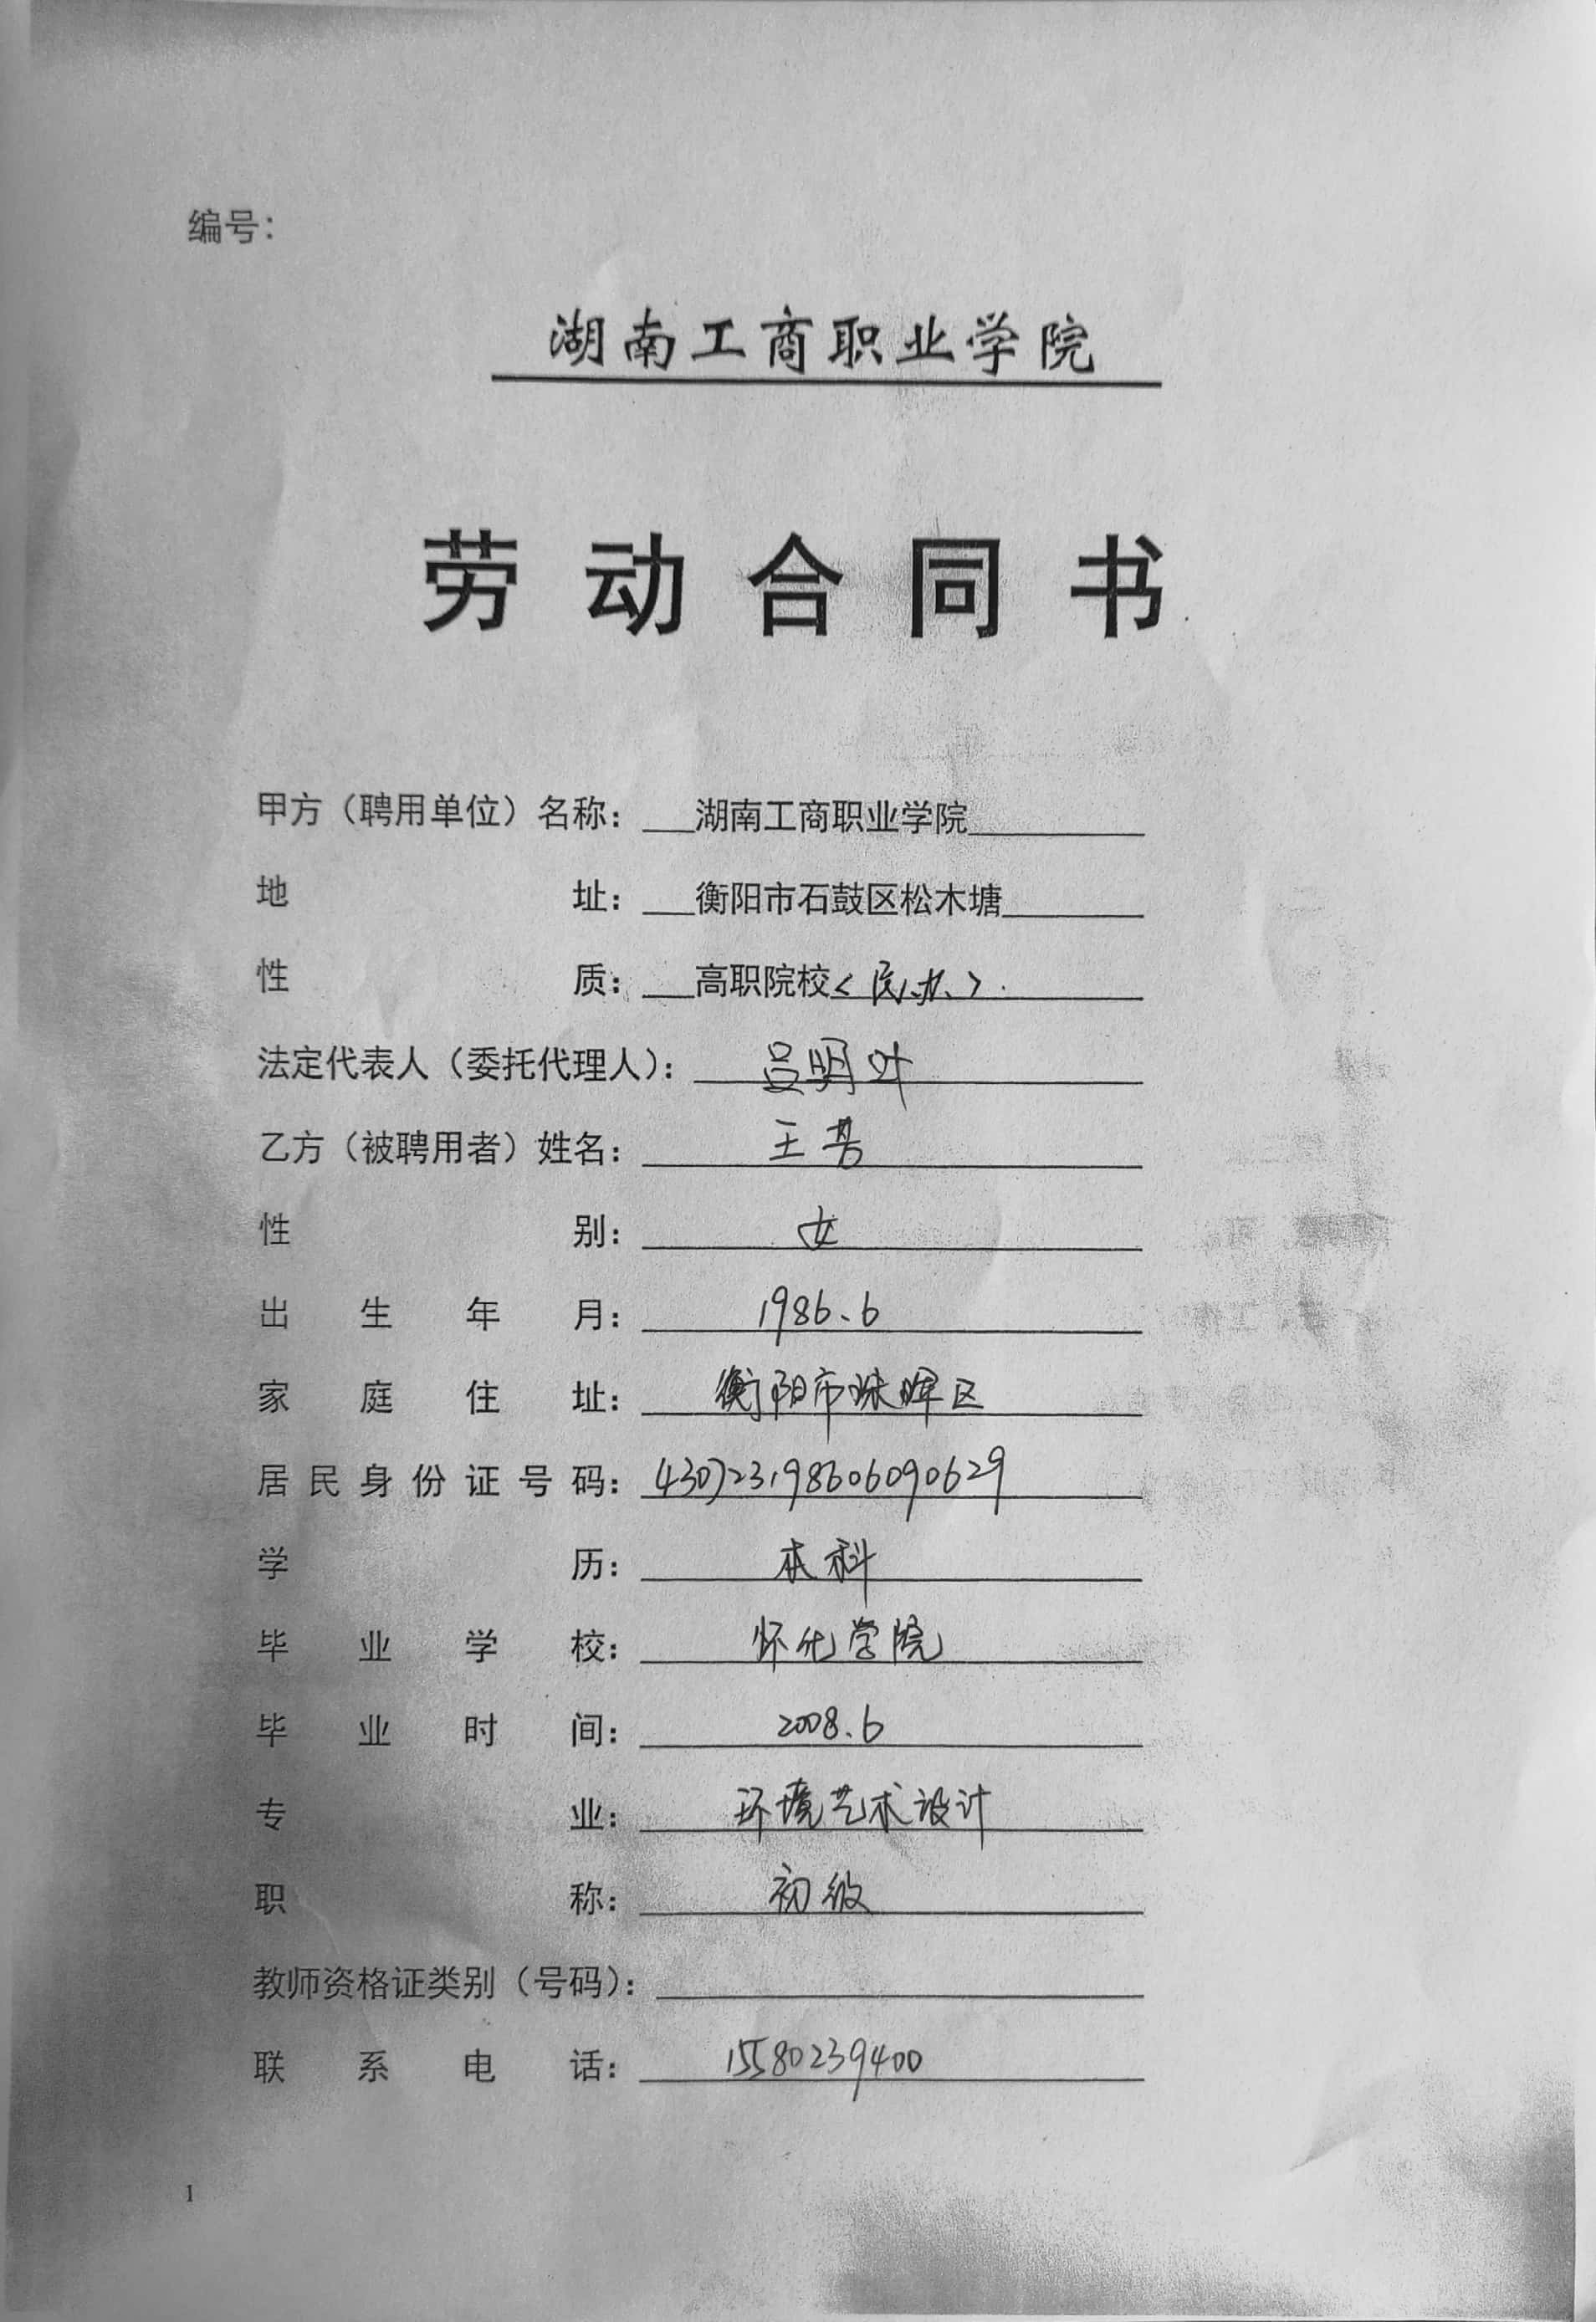 编号：
湖南工商职业学院
劳动合同书
甲方（聘用单位）名称：湖南工商职业学院
地址：衡阳市石鼓区松木塘
性质：高职院校<民办>.
法定代表人（委托代理人）：吕明叶
乙方（被聘用者）姓名：王
性别：女
出生年月：1986.6
家庭住址：衡阳市珠晖区
居民身份证号码：430723198606090629
学历：本科
毕业学校：怀化学院
毕业时间：2008.6
专业：环境艺术设计
职称：初级
教师资格证类别（号码）：
联系电话：15580239400
1